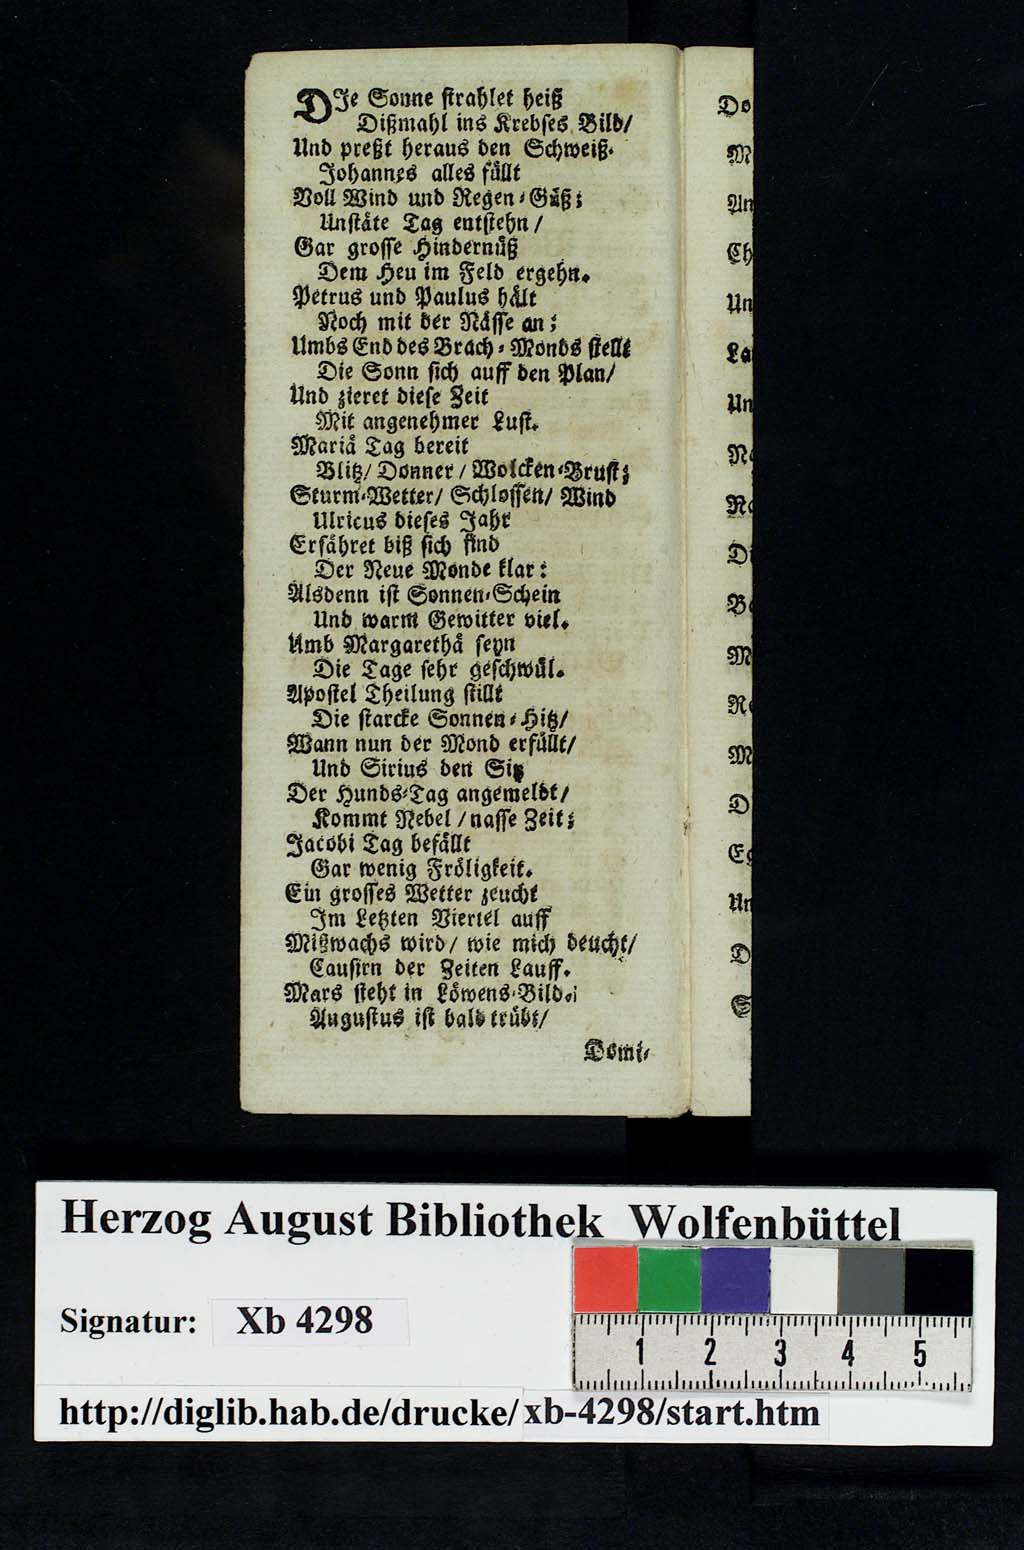 DIe Sonne strahlet heiß
Dißmahl ins Krebses Bild/
Und preßt heraus den Schweiß.
Johannes alles füllt
Voll Wind und Regen-Güß;
Unstäte Tag entstehn/
Gar grosse Hindernüß
Dem Heu im Feld ergehn.
Petrus und Paulus hält
Noch mit der Nässe an;
Umbs End des Brach-Monds stellt
Die Sonn sich auff den Plan/
Und zieret diese Zeit
Mit angenehmer Lust.
Mariä Tag bereit
Blitz/ Donner/ Wolcken-Brust;
Sturm-Wetter/ Schlossen/ Wind
Ulricus dieses Jahr
Erfähret biß sich find
Der Neue Monde klar:
Alsdenn ist Sonnen-Schein
Und warm Gewitter viel.
Umb Margarethä seyn
Die Tage sehr geschwül.
Apostel Theilung stillt
Die starcke Sonnen-Hitz/
Wann nun der Mond erfüllt/
Und Sirius den Sitz
Der Hunds-Tag angemeldt/
Kommt Nebel/ nasse Zeit;
Jacobi Tag befällt
Gar wenig Fröligkeit.
Ein grosses Wetter zeucht
Im Letzten Viertel auff
Mißwachs wird/ wie mich deucht/
Causirn der Zeiten Lauff.
Mars steht in Löwens-Bild.
Augustus ist bald trübt/
Domi-
Do
M
An
Ch
Un
La
Un
Na
Na
Di
Ba
M
Re
M
D
Eg
Un
D
S
Herzog August Bibliothek Wolfenbüttel
Signatur: Xb 4298
1 2 3 4 5
http://diglib.hab.de/drucke/xb-4298/start.htm